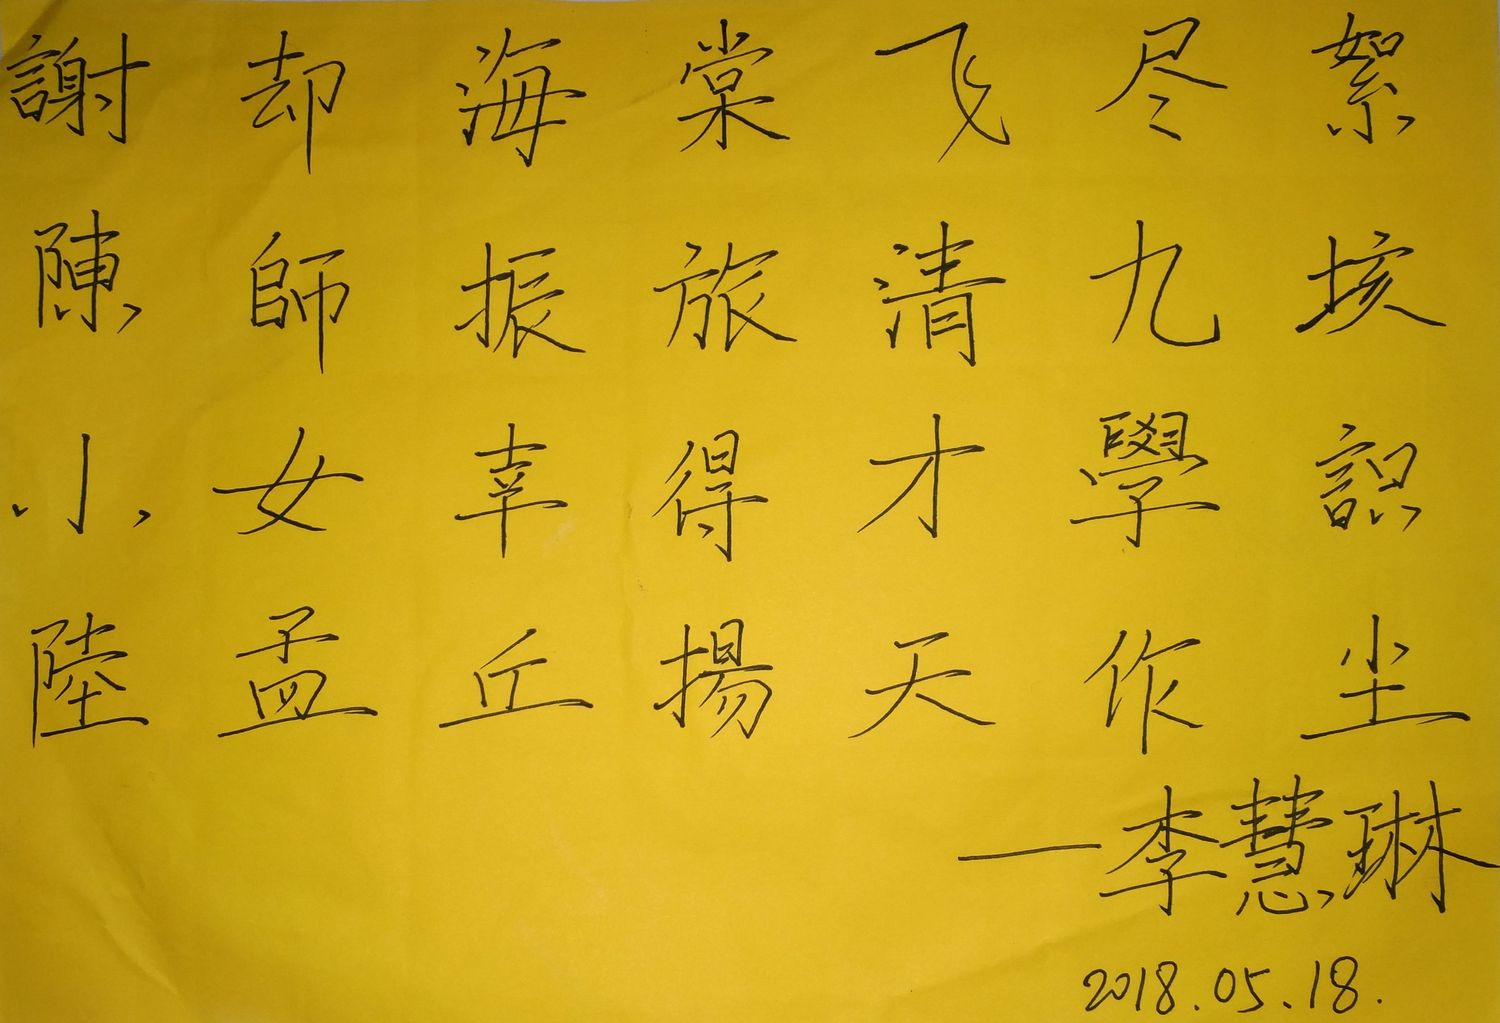 謝却海棠飞尽絮
陳師振旅清九垓
小女幸得才學認
陸孟丘揚天作尘
—李慧琳
2018.05.18.